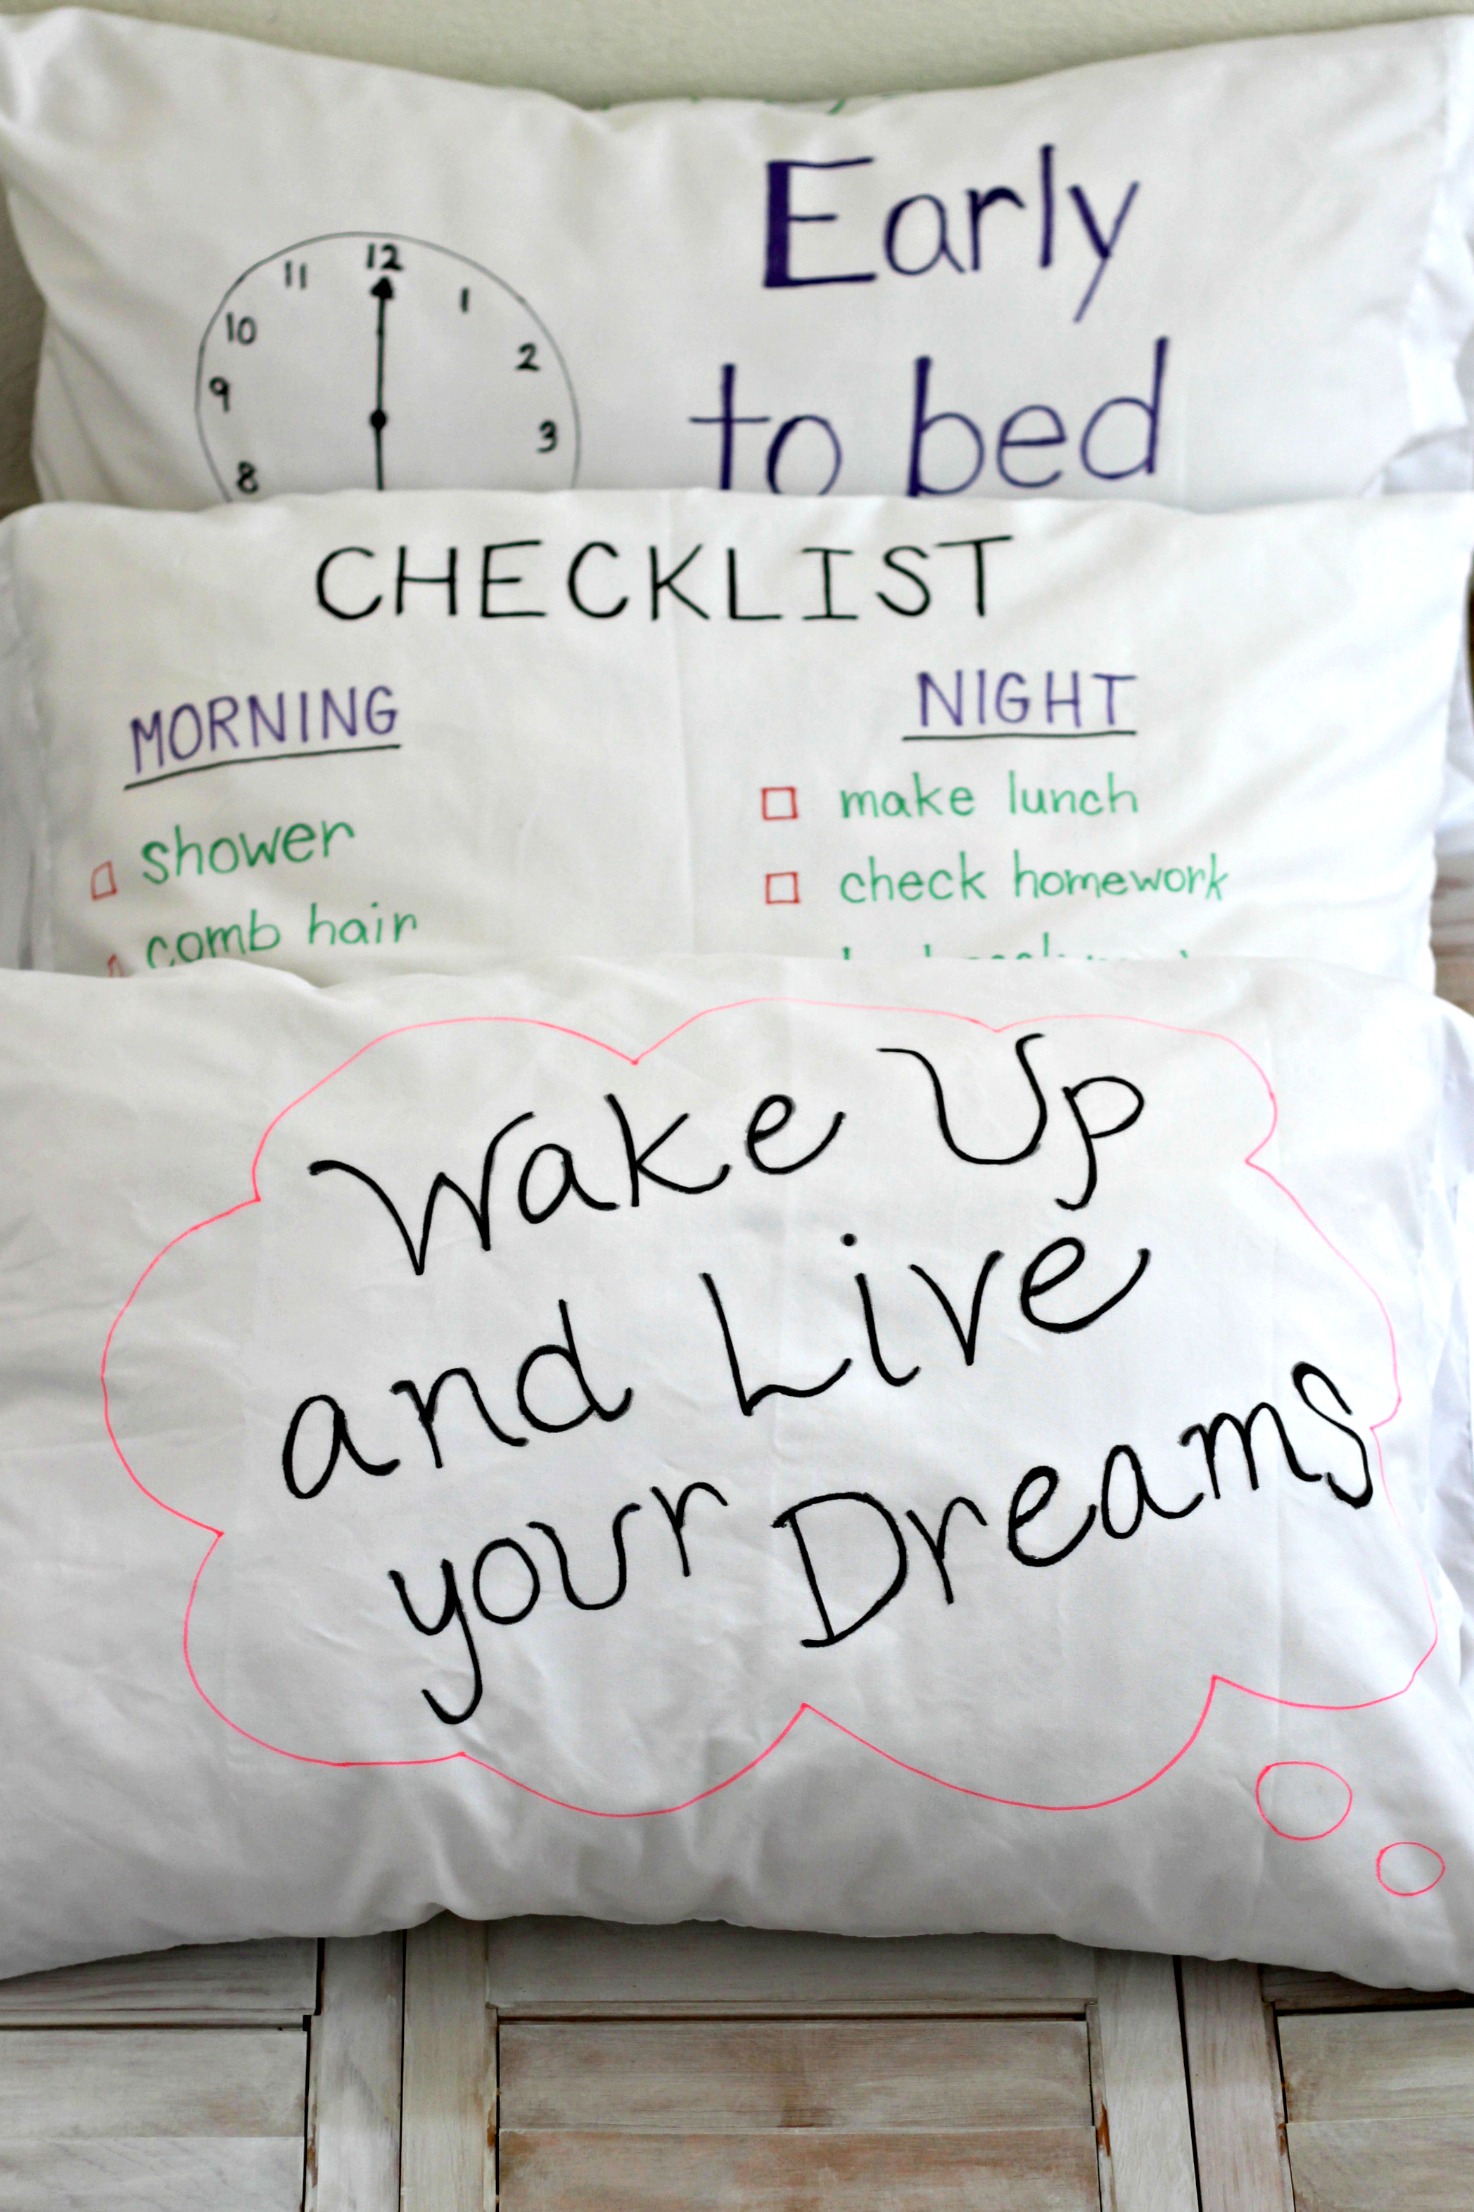 Early
to bed
12
11
1
10
2
9
3
8
CHECKLIST
MORNING
shower
comb hair
NIGHT
make lunch
check homework
Wake Up
and Live
your Dreams